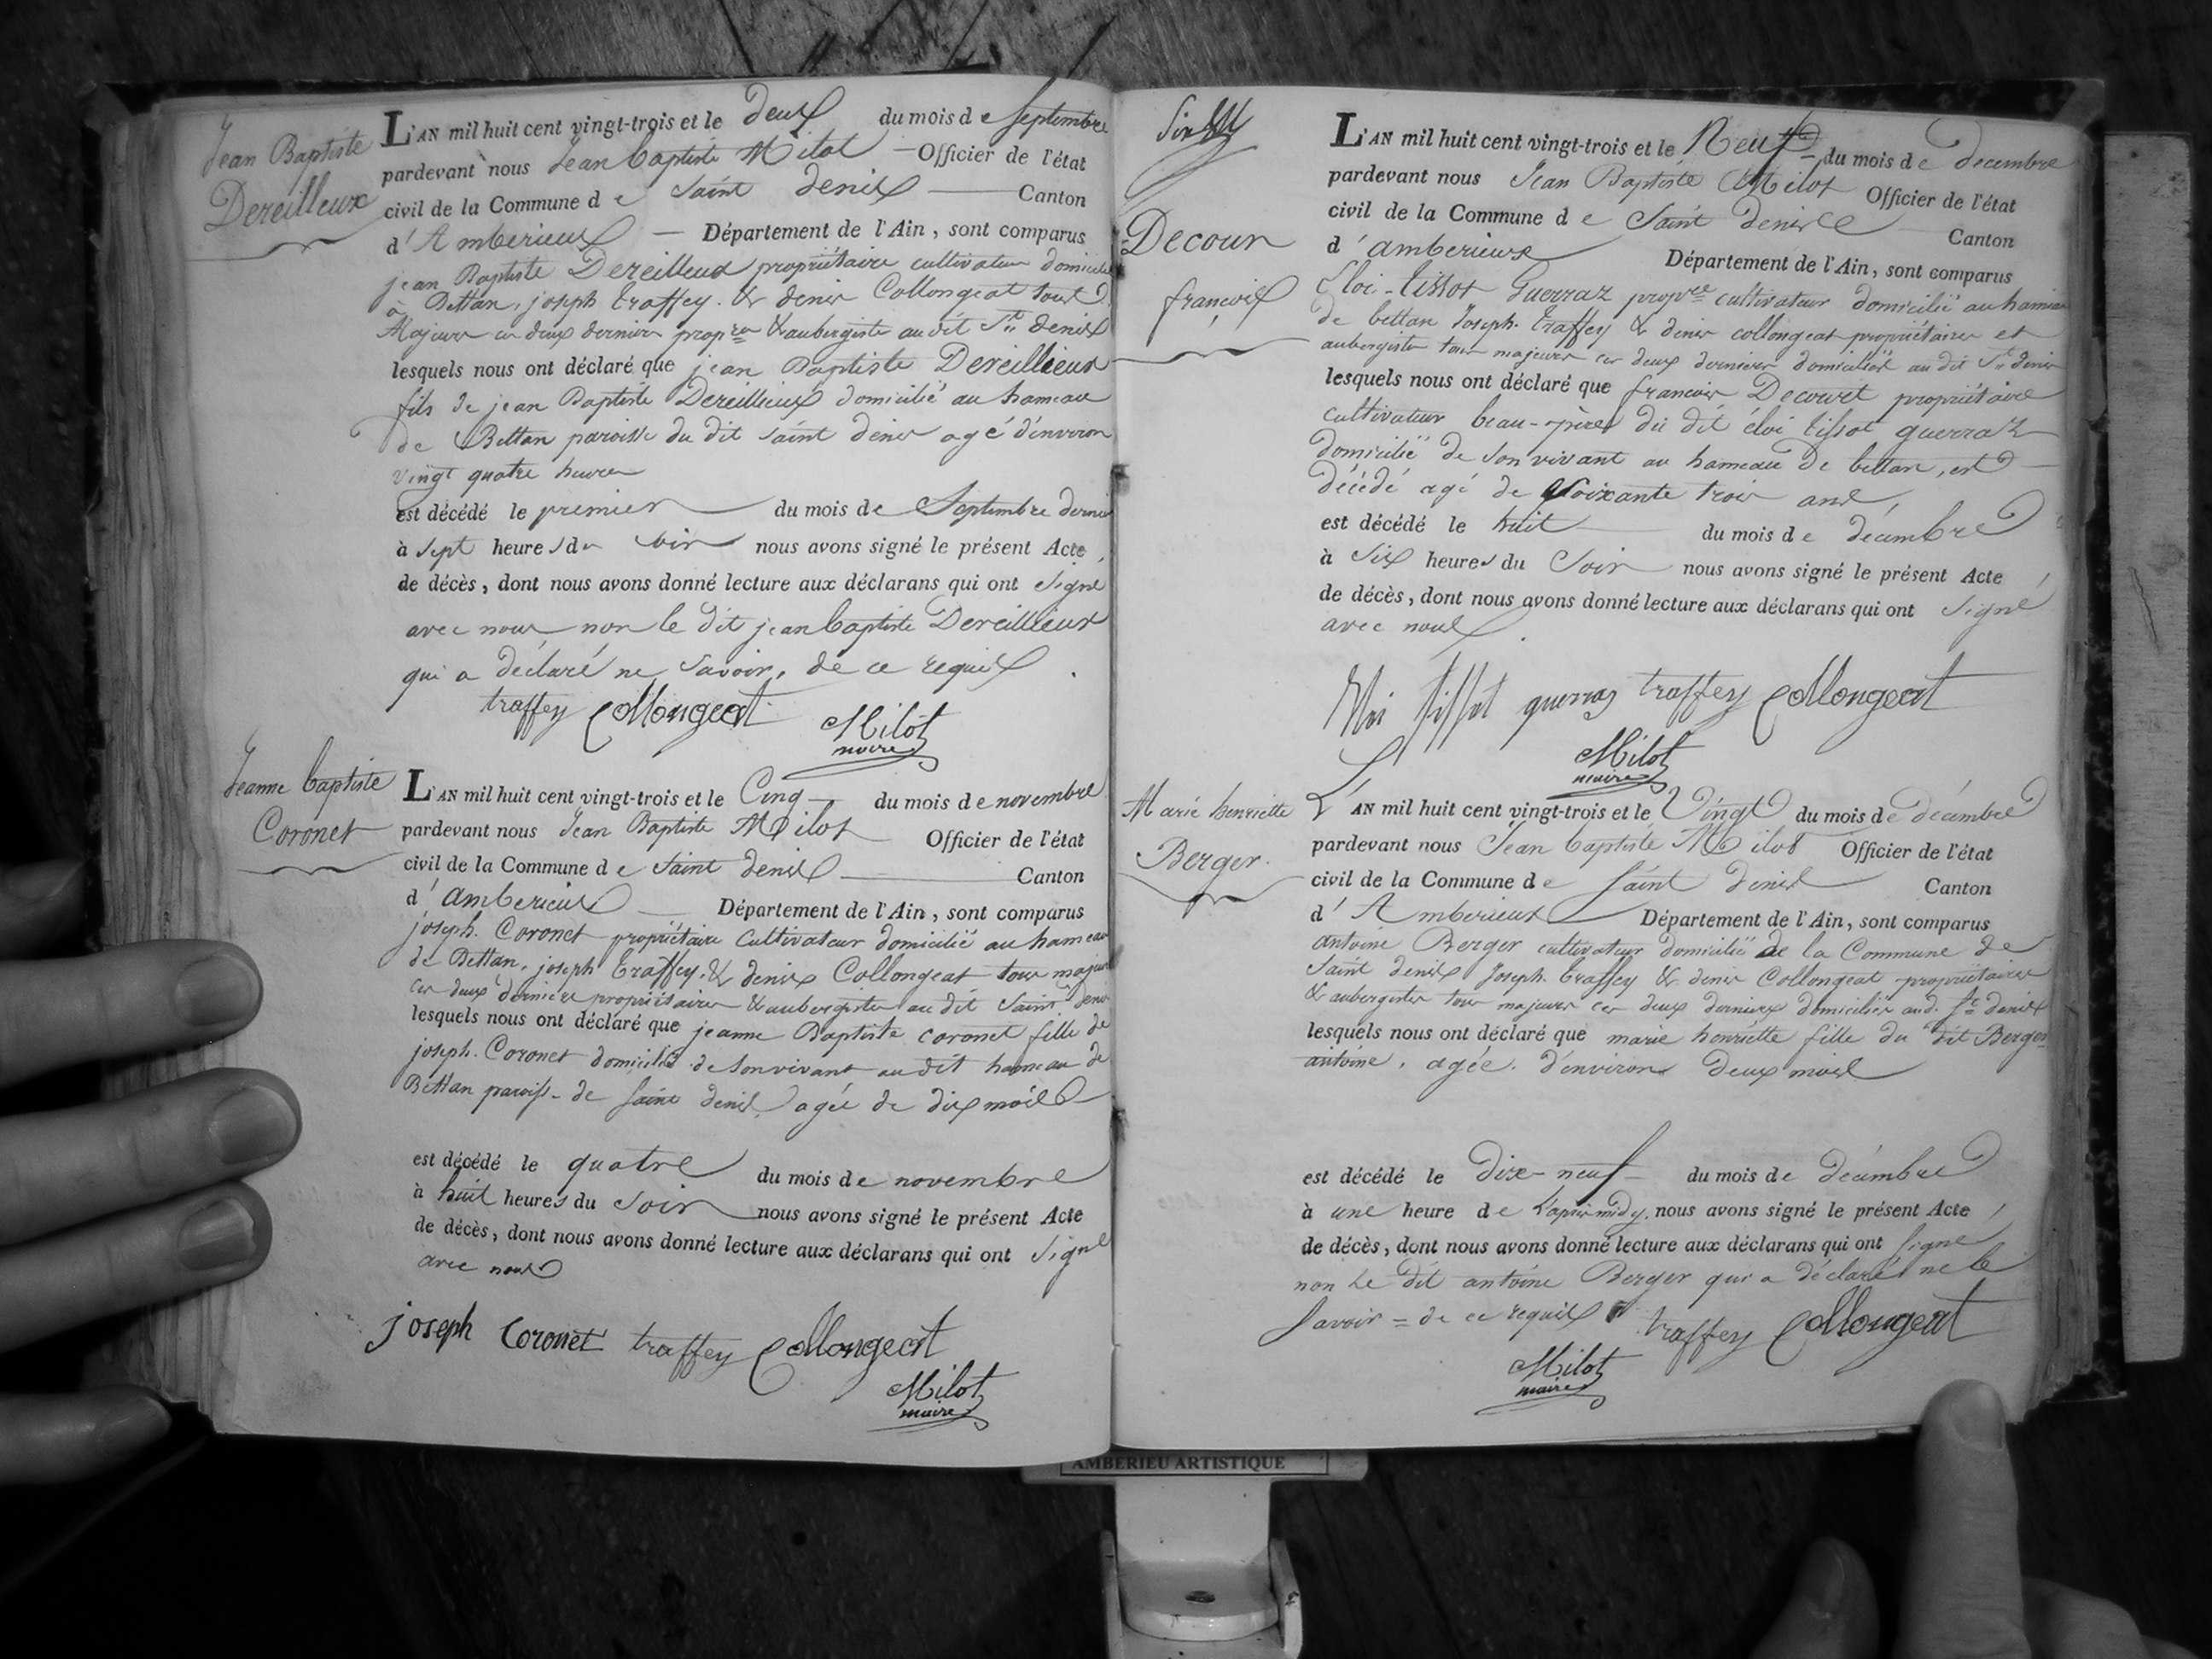 Jean Baptiste
Dereilleux
L'AN mil huit cent vingt-trois et le deux du mois de septembre
pardevant nous Jean baptiste Milot Officier de l'état
civil de la Commune de Saint denis Canton
d'Amberieux Département de l'Ain, sont comparus
jean Baptiste Dereilleux propriétaire cultivateur domicilié
à Bettan, joseph traffey & denis Collongeat tous
Majeurs ces deux derniers propres & aubergiste au dit St denis
lesquels nous ont déclaré que jean Baptiste Dereillieux
fils de jean Baptiste Dereillieux domicilié au hameau
de Bettan paroisse du dit saint denis agé d'environ
vingt quatre heures
est décédé le premier du mois de Septembre dernier
à sept heures du soir nous avons signé le présent Acte
de décès, dont nous avons donné lecture aux déclarans qui ont signé
avec nous non le dit jean baptiste Dereillieux
qui a déclaré ne savoir, de ce requis
traffey Collongeat Milot
maire
Jeanne baptiste
Coronet
L'AN mil huit cent vingt-trois et le Cinq du mois de novembre
pardevant nous Jean Baptiste Milot Officier de l'état
civil de la Commune de Saint denis Canton
d'amberieux Département de l'Ain, sont comparus
joseph Coronet propriétaire Cultivateur domicilié au hameau
de Bettan, joseph traffey & denis Collongeat tous majeurs
ces deux derniers propriétaires & aubergistes au dit Saint denis
lesquels nous ont déclaré que jeanne Baptiste coronet fille de
joseph Coronet domicilié de son vivant au dit hameau de
Bettan paroiss- de Saint denis agée de dix mois
est décédé le quatre du mois de novembre
à huit heures du soir nous avons signé le présent Acte
de décès, dont nous avons donné lecture aux déclarans qui ont signé
avec nous
joseph Coronet traffey Collongeat
Milot
maire
Decour
françois
L'AN mil huit cent vingt-trois et le Neuf du mois de decembre
pardevant nous Jean Baptiste Milot Officier de l'état
civil de la Commune de Saint denis Canton
d'amberieux Département de l'Ain, sont comparus
Eloi-tissot Guerraz propre cultivateur domicilié au hameau
de bettan Joseph traffey & denis collongeat propriétaires et
aubergistes tous majeurs ces deux derniers domiciliés au dit St denis
lesquels nous ont déclaré que francois Decouret propriétaire
cultivateur beau-père du dit éloi tissot guerraz
domicilié de son vivant au hameau de bettan, est
décédé agé de soixante trois ans,
est décédé le huit du mois de décembre
à six heures du soir nous avons signé le présent Acte
de décès, dont nous avons donné lecture aux déclarans qui ont signé
avec nous.
tissot guerras traffey Collongeat
Milot
maire
Marie henriette
Berger
L'AN mil huit cent vingt-trois et le Vingt du mois de décembre
pardevant nous Jean baptiste Milot Officier de l'état
civil de la Commune de saint denis Canton
d'Amberieux Département de l'Ain, sont comparus
antoine Berger cultivateur domicilié de la Commune de
Saint denis Joseph traffey & denis Collongeat propriétaires
& aubergistes tous majeurs ces deux derniers domiciliés aud. St denis
lesquels nous ont déclaré que marie henriette fille du dit Berger
antoine, agée d'environ deux mois
est décédé le dix-neuf du mois de décembre
à une heure de l'après midy, nous avons signé le présent Acte
de décès, dont nous avons donné lecture aux déclarans qui ont signé
non le dit antoine Berger qui a déclaré ne le
savoir = de ce requis traffey Collongeat
Milot
maire
AMBERIEU ARTISTIQUE